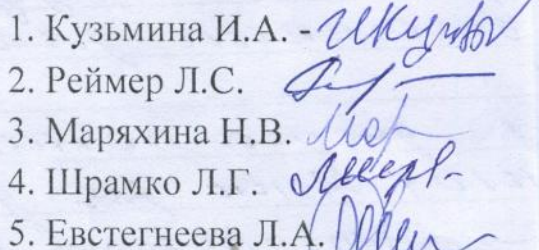 1. Кузьмина И.А. -
2. Реймер Л.С.
3. Маряхина Н.В.
4. Шрамко Л.Г.
5. Евстегнеева Л.А.